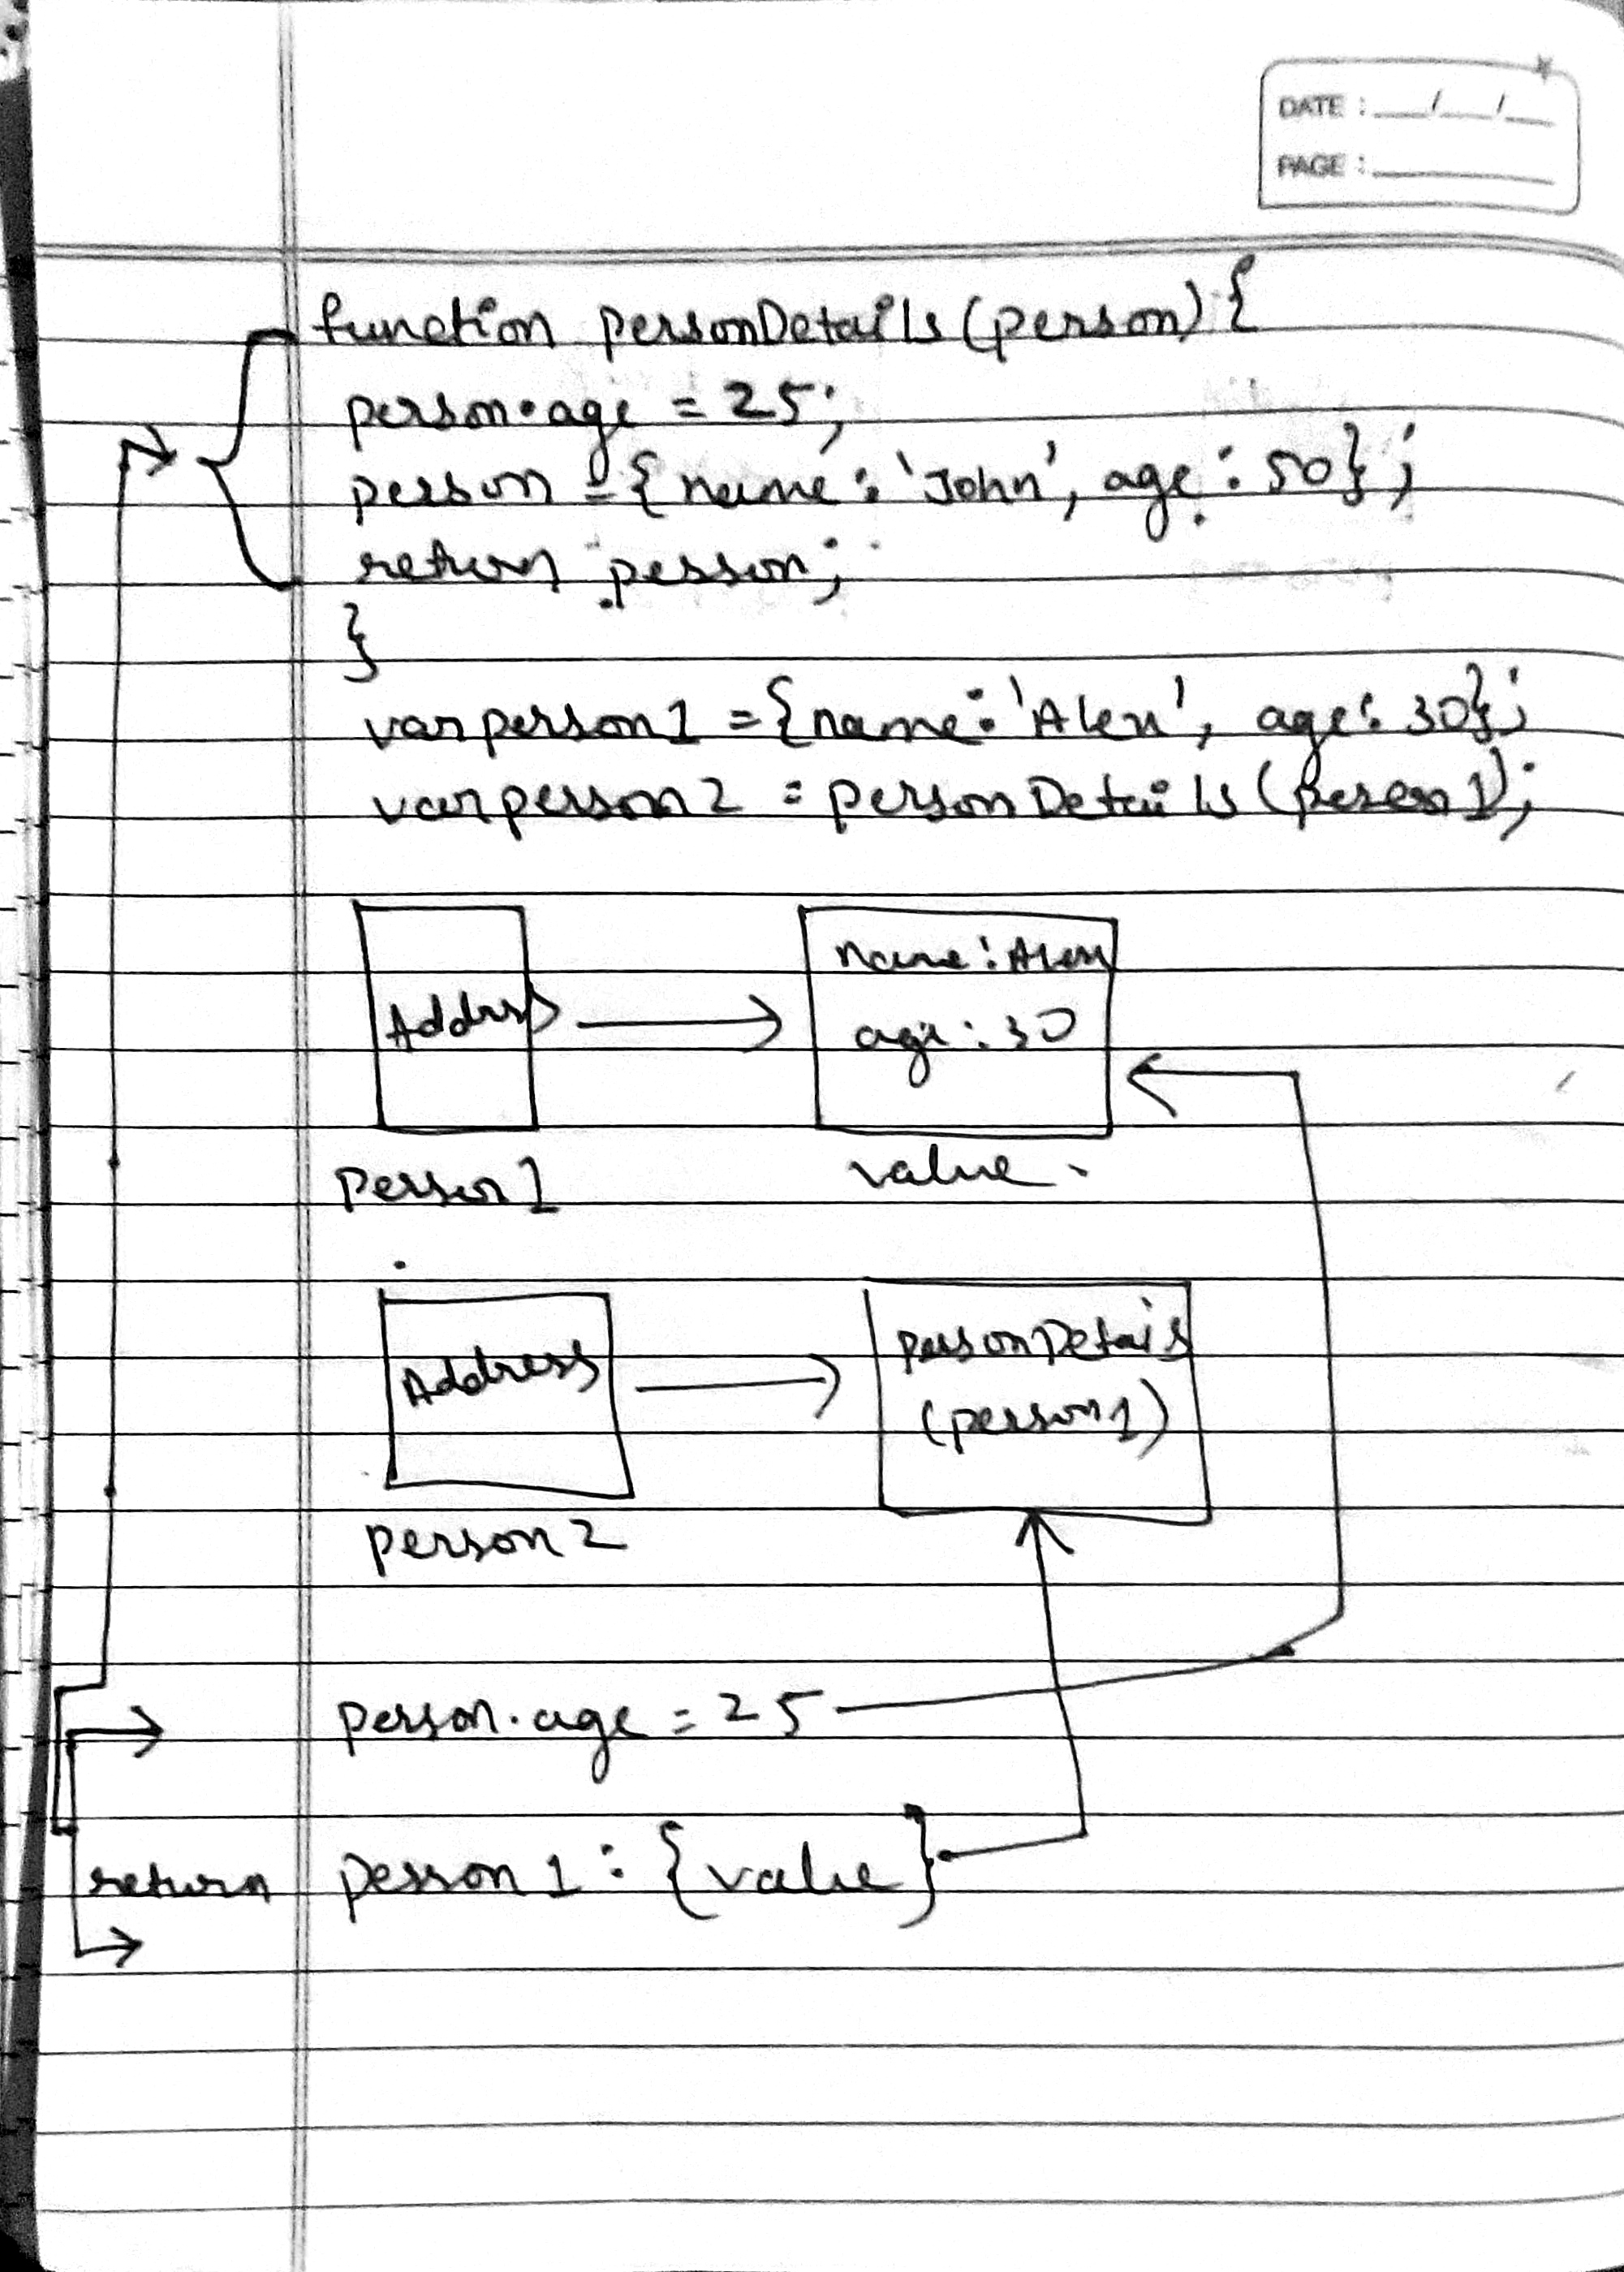 DATE : __/__/__
PAGE : ______
function personDetails(person) {
person.age = 25;
person = { name : 'John', age : 50 } ;
return person;
}
var person1 = {name: 'Alex', age: 30};
var person2 = personDetails (person1);
Address
name: Alex
age: 30
person1
value
Address
personDetails
(person1)
person2
person.age = 25
return person1 : {value}